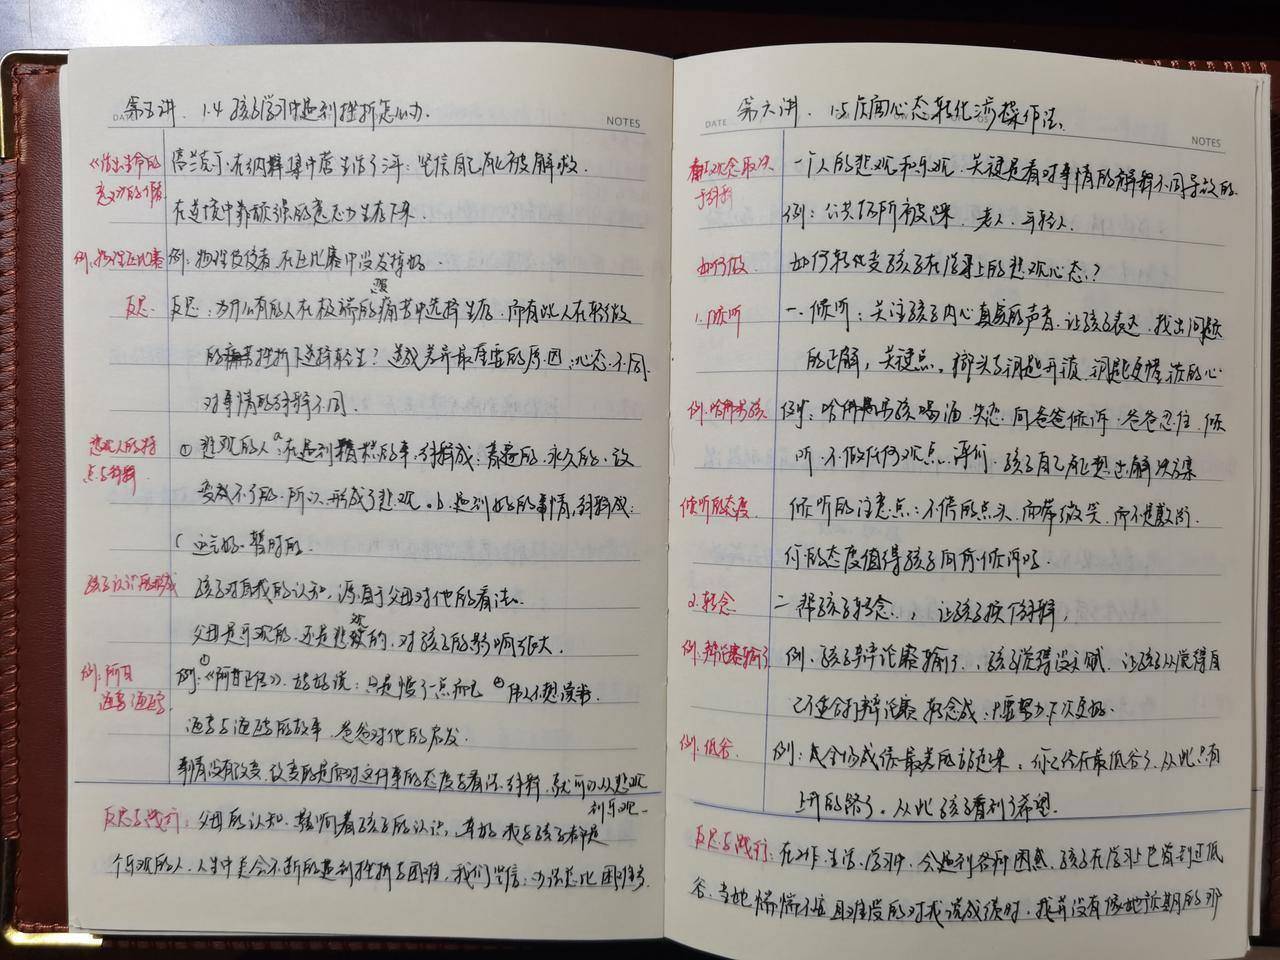 第五讲. 1.4 孩子学习中遇到挫折怎么办.
DATE
NOTES
《活出生命的
意义》的作者
弗兰克可在纳粹集中营生活了三年: 坚信自己能被解救.
在逆境中靠顽强的意志力生存下来.
例: 物理 比赛
例: 物理 在比赛中没发挥好.
反思.
反思: 为什么有的人在极端的痛苦中选择生存. 而有些人在轻微
的挫折下选择轻生? 造成差异最重要的原因: 心态不同.
对事情的解释不同.
悲观人的特
点与解释
① 悲观的人: a 在遇到糟糕的事. 解释成: 普遍的. 永久的. 改
变不了的. 所以形成了悲观. b. 遇到好的事情, 解释成:
( 暂时的.
孩子认识的形成
孩子对自我的认知, 源自于父母对他的看法.
父母是乐观的, 还是悲观的, 对孩子的影响很大.
例: 阿甘
例: ①《阿甘正传》. 妈妈说: 只是慢了一点而已
的故事. 爸爸对他的启发.
事情没有改变. 改变的是面对这件事的态度与看法. 解释, 就可以从悲观
到乐观.
反思与践行: 父母的认知, 影响着孩子的认识, 我与孩子都是
个乐观的人. 人生中总会不断的遇到挫折与困难. 我们坚信: 办法总比困难多.
第六讲. 1.5 负面心态转化 操作法.
DATE
NOTES
观念取决
于解释
一个人的悲观和乐观. 关键是看对事情的解释不同导致的.
例: 公共场所被踩. 老人. 年轻人.
如何做
如何转化变孩子在学习上的悲观心态?
1. 倾听
一. 倾听: 关注孩子内心真实的声音. 让孩子表达, 找出问题
的正解, 关键点. 榔头与钥匙开锁. 钥匙更懂锁的心
例: 哈佛男孩
例: 哈佛男孩喝酒. 失恋. 向爸爸倾诉. 爸爸忍住. 倾
听. 不做任何观点. 评价. 孩子自己能想出解决方案
倾听的态度
倾听的注意点: 不停的点头. 面带微笑. 而不是敷衍.
你的态度值得孩子向你倾诉吗.
2. 转念
二. 帮孩子转念. 让孩子换个解释,
例: 辩论赛输了
例. 孩子辩论赛输了. 孩子觉得没天赋. 让孩子从觉得自
己不适合打辩论赛. 转念成: 只要努力下次更好.
例: 低谷
例: 成全场成绩最差的站起来. 你已经在最低谷了. 从此只有
上升的路了. 从此孩子看到了希望.
反思与践行: 在工作. 生活. 学习中. 会遇到各种困惑. 孩子在学习上也曾到过低
谷. 当她惴惴不安且难受的对我说成绩时, 我并没有像她预期的那